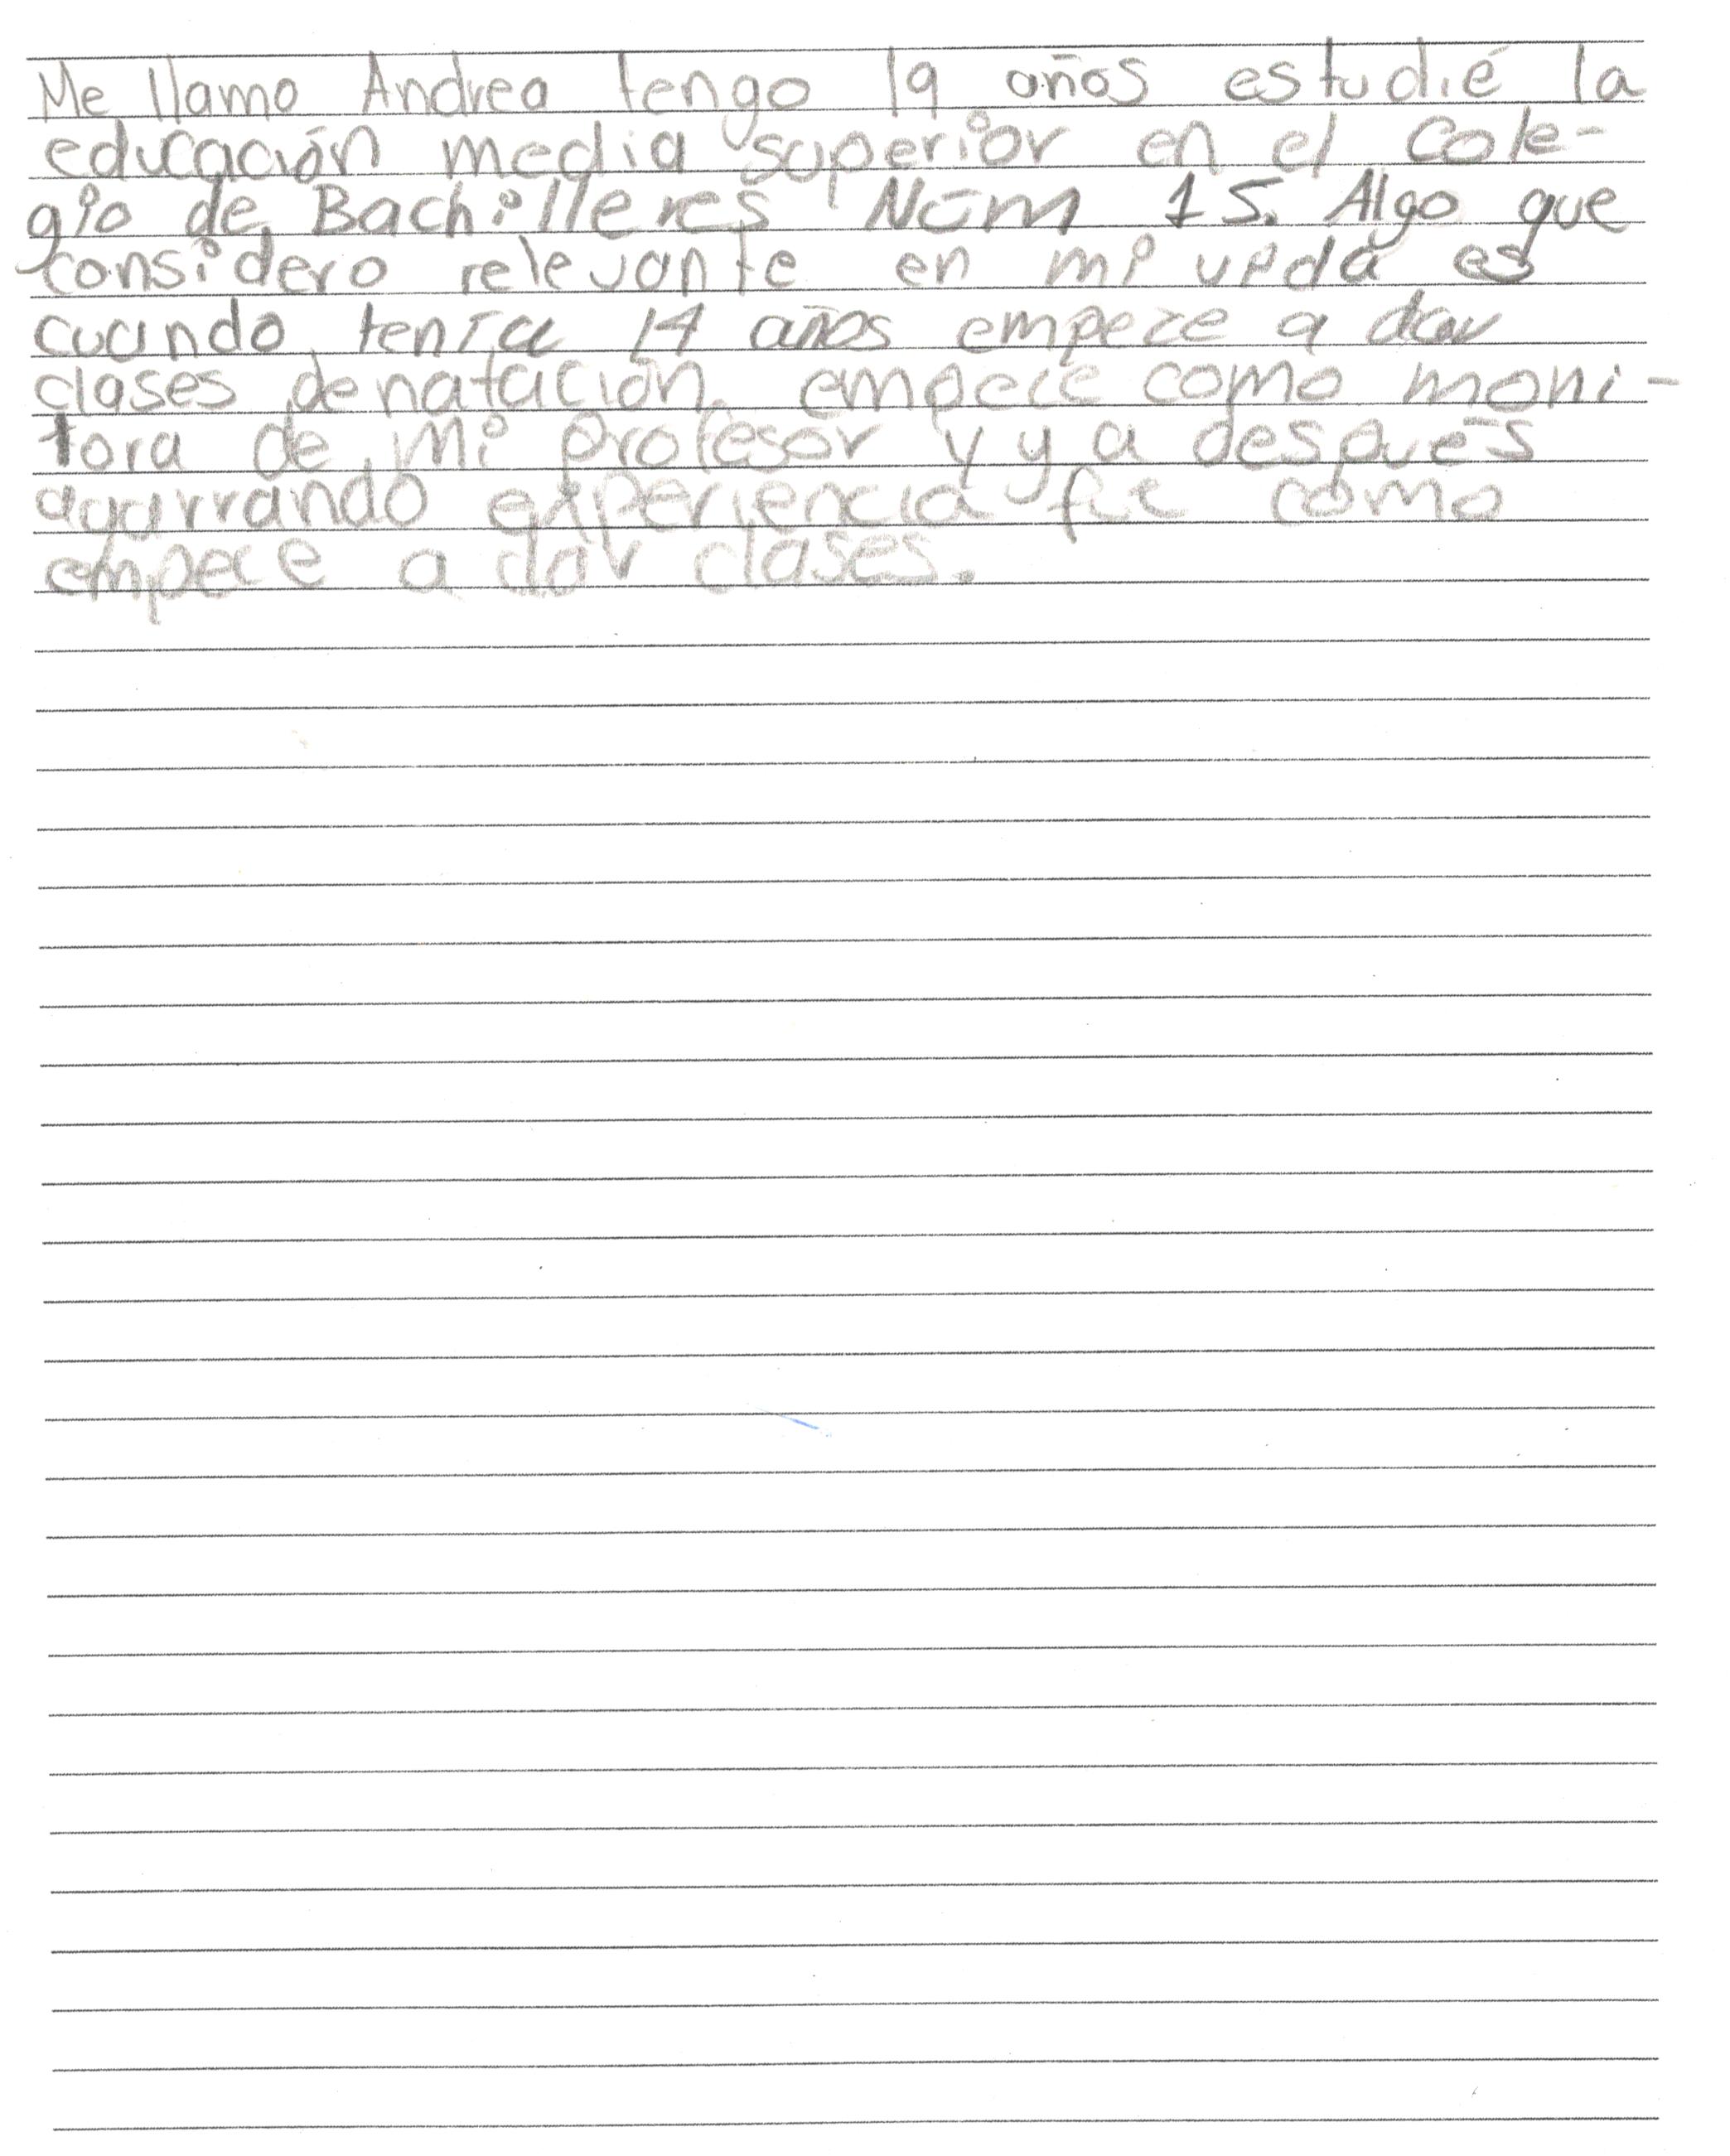 Me llamo Andrea tengo 19 años estudié la
educación media superior en el Cole-
gio de Bachilleres Núm 15. Algo que
considero relevante en mi vida es
cuando tenía 14 años empeze a dar
clases de natación empece como moni-
tora de mi profesor y ya después
agarrando experiencia fue como
empece a dar clases.